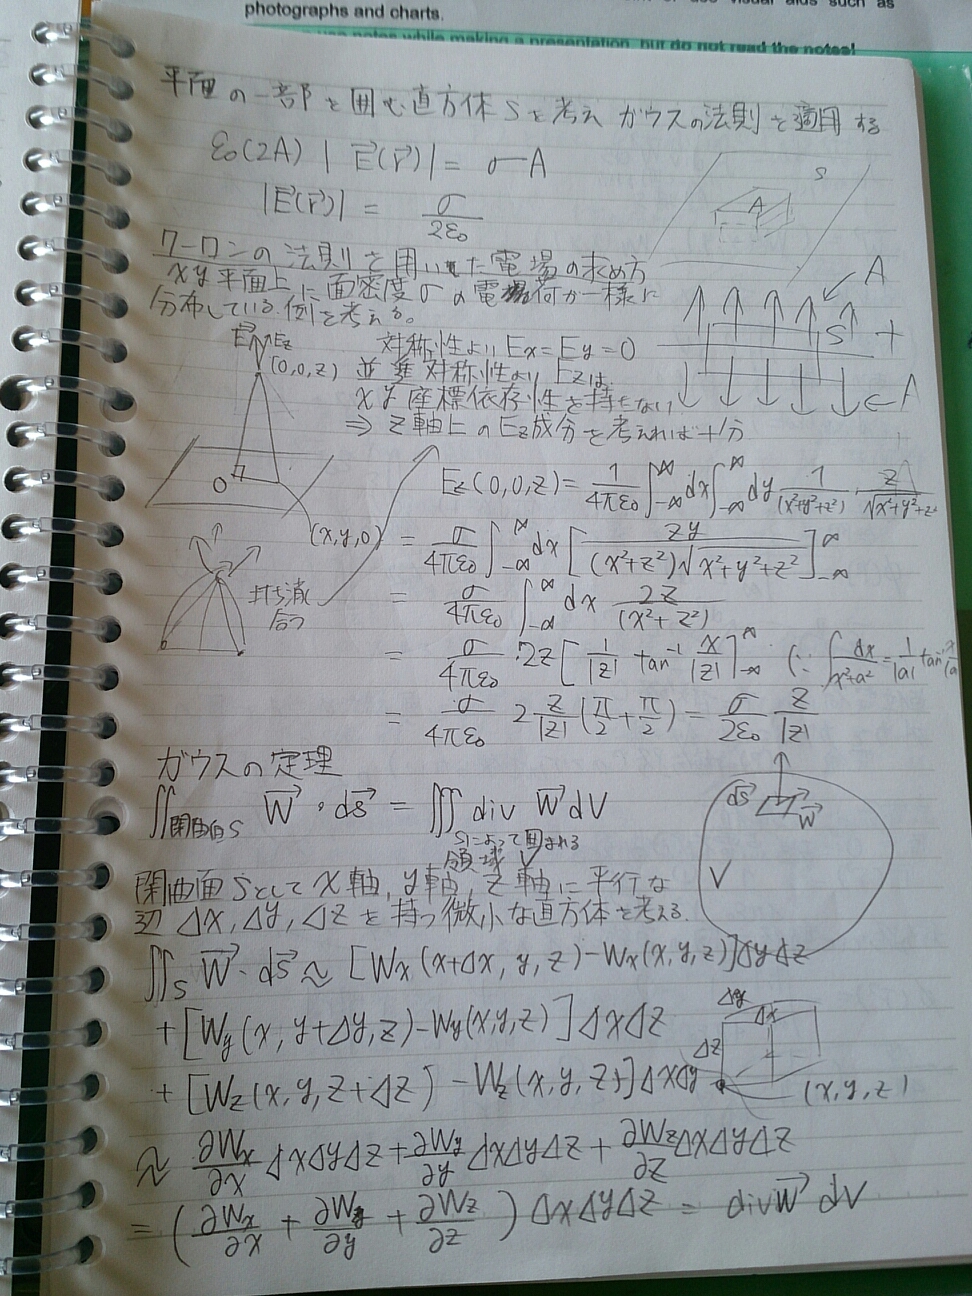 photographs and charts.
use notes while making a presentation, but do not read the notes!
平面の一部を囲む直方体Sを考え ガウスの法則を適用する
ε₀(2A) | E⃗(r⃗)| = σA
|E⃗(r⃗)| = σ/2ε₀
S
A
クーロンの法則を用いた電場の求め方
xy平面上に面密度σの電荷が一様に
分布している例を考える。
A
S
+
A
E⃗ Ez
(0,0,z)
O
(x,y,0)
対称性より Ex = Ey = 0
並進対称性より Ezは
xy座標依存性を持たない
⇒ z軸上のEz成分を考えれば十分
打ち消し
合う
Ez(0,0,z) = 1/4πε₀ ∫_{-∞}^{∞} dx ∫_{-∞}^{∞} dy 1/(x²+y²+z²) · z/√x²+y²+z²
= σ/4πε₀ ∫_{-∞}^{∞} dx [ zy/(x²+z²)√x²+y²+z² ]_{-∞}^{∞}
= σ/4πε₀ ∫_{-∞}^{∞} dx 2z/(x²+z²)
= σ/4πε₀ · 2z [ 1/|z| tan⁻¹ x/|z| ]_{-∞}^{∞} (∵ ∫ dx/x²+a² = 1/|a| tan⁻¹ x/|a|
= σ/4πε₀ 2 z/|z| (π/2 + π/2) = σ/2ε₀ z/|z|
ガウスの定理
∬閉曲面S W⃗・dS⃗ = ∭ div W⃗ dV
Sによって囲まれる
領域 V
dS⃗
W⃗
V
閉曲面Sとしてx軸, y軸, z軸に平行な
辺 Δx, Δy, Δz を持つ微小な直方体を考える.
∬S W⃗・dS⃗ ≈ [Wx(x+Δx, y, z) − Wx(x, y, z)]ΔyΔz
+ [Wy(x, y+Δy, z) − Wy(x,y,z)]ΔxΔz
+ [Wz(x, y, z+Δz) − Wz(x, y, z)]ΔxΔy
Δy
Δx
Δz
(x, y, z)
≈ ∂Wx/∂x ΔxΔyΔz + ∂Wy/∂y ΔxΔyΔz + ∂Wz/∂z ΔxΔyΔz
= (∂Wx/∂x + ∂Wy/∂y + ∂Wz/∂z) ΔxΔyΔz = divW⃗ dV